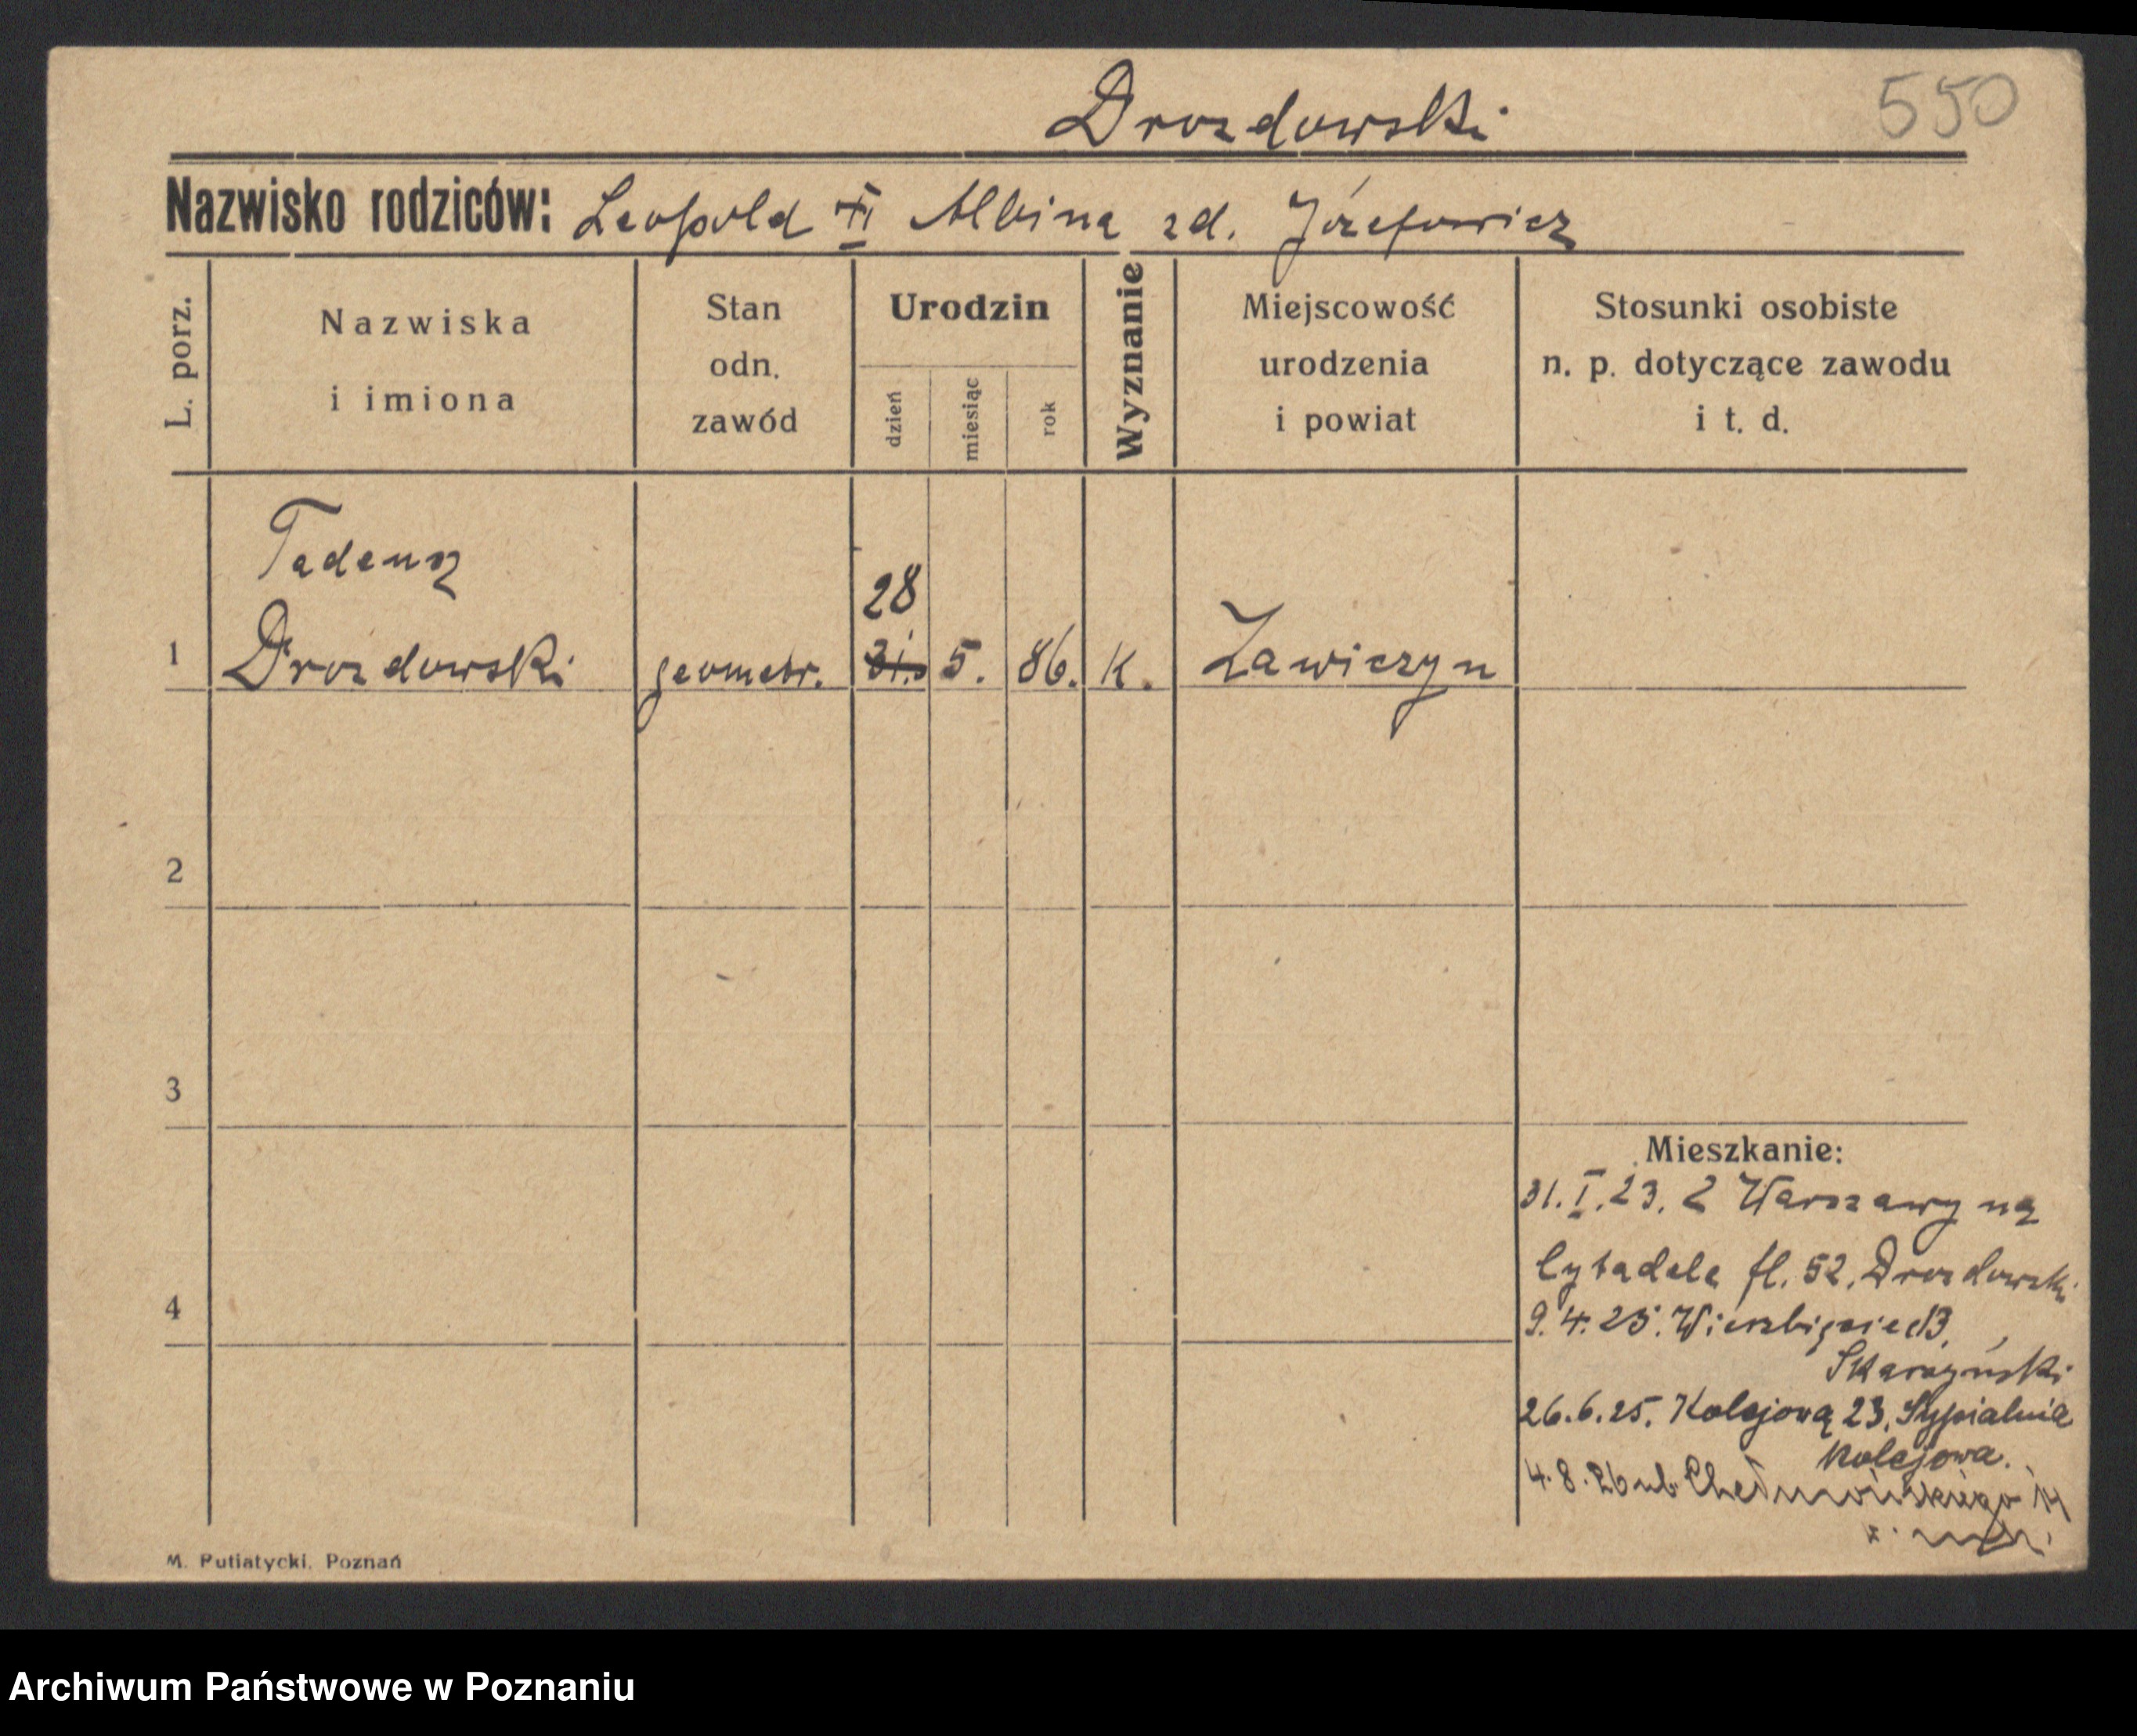 Drozdowski
550
Nazwisko rodziców: Leopold Albina zd. Józefowicz
L. porz.
Nazwiska
i imiona
Stan
odn.
zawód
Urodzin
dzień
miesiąc
rok
Wyznanie
Miejscowość
urodzenia
i powiat
Stosunki osobiste
n. p. dotyczące zawodu
i t. d.
Tadeusz
28
1 Drozdowski geometr. 31. 5. 86. K. Zawiczyn
2
3
Mieszkanie:
31. I. 23. Z Warszawy na
Cytadela fl. 52. Drozdowski
4
9. 4. 25. Wierzbięcice 13.
Skarzyński
26. 6. 25. Kolejowa 23. Sypialnia
Kolejowa.
4. 8. 26 ul. Chełmońskiego
M. Putiatycki. Poznań
Archiwum Państwowe w Poznaniu